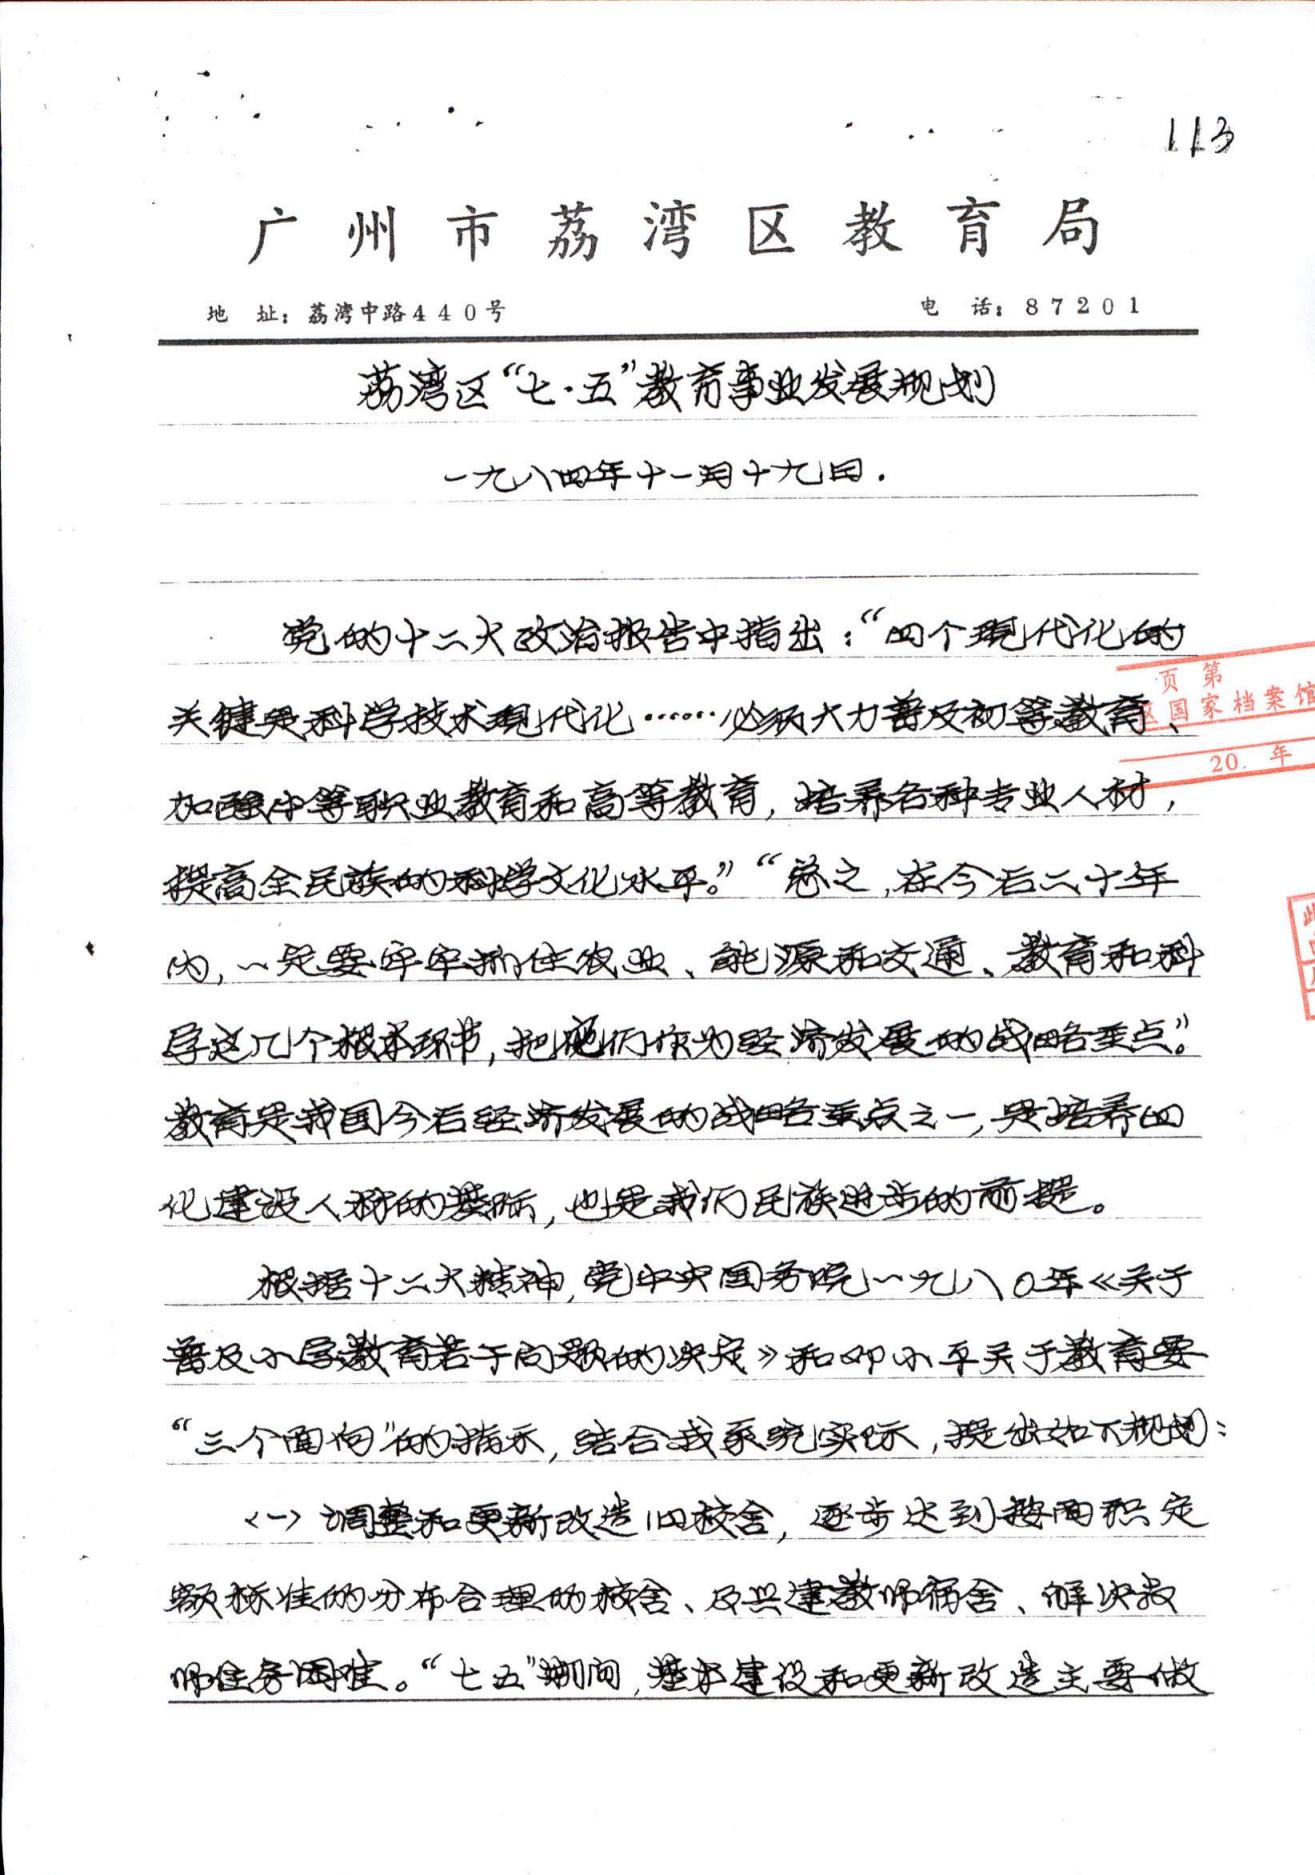 113
广州市荔湾区教育局
地 址：荔湾中路440号 电 话：87201
荔湾区“七·五”教育事业发展规划
一九八四年十一月十九日.
党的十二大政治报告中指出：“四个现代化的
关键是科学技术现代化……必须大力普及初等教育、
加强中等职业教育和高等教育，培养各种专业人材，
提高全民族的科学文化水平。”“总之，在今后二十年
内，一定要牢牢抓住农业、能源和交通、教育和科
学这几个根本环节，把它们作为经济发展的战略重点。”
教育是我国今后经济发展的战略重点之一，是培养四
化建设人材的基础，也是我们民族进步的前提。
根据十二大精神，党中央国务院一九八〇年《关于
普及小学教育若干问题的决定》和邓小平关于教育要
“三个面向”的指示，结合我系统实际，提出如下规划：
<一>调整和更新改造旧校舍，逐步达到按面积定
额标准的分布合理的校舍、及兴建教师宿舍、解决教
师住房困难。“七五”期间，基本建设和更新改造主要做
页 第
区国家档案馆
20. 年